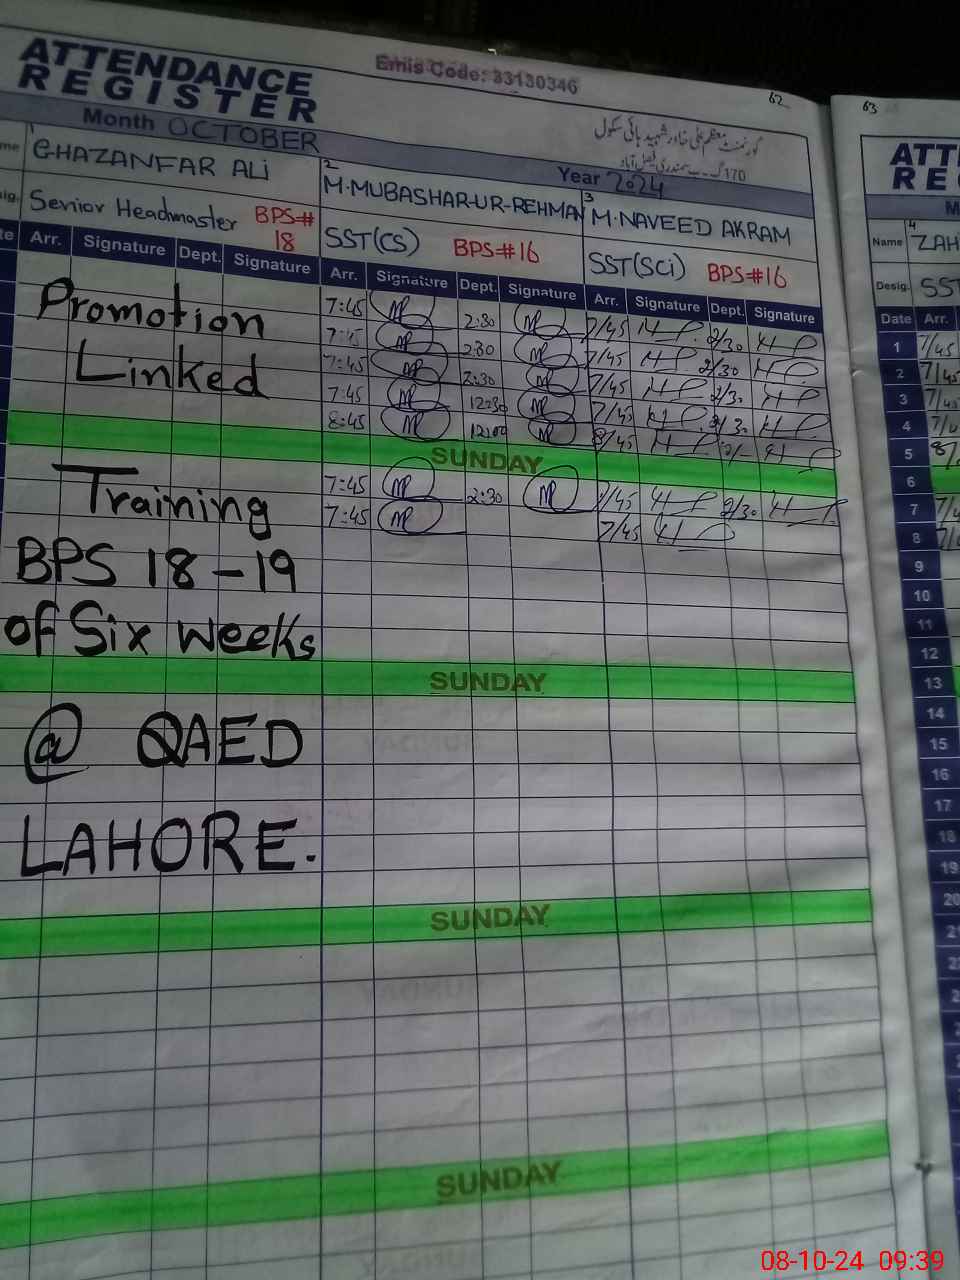 ATTENDANCE
REGISTER
Emis Code: 33130346
62
گورنمنٹ معظم علی خادر شہید ہائی سکول
170 گ۔ب سمندری فیصل آباد
Month OCTOBER
Year 2024
me 1 GHAZANFAR ALi
2 M.MUBASHAR-UR-REHMAN
3 M.NAVEED AKRAM
sig. Senior Headmaster BPS# 18
SST(CS) BPS#16
SST(SCi) BPS#16
te Arr. Signature Dept. Signature Arr. Signature Dept. Signature Arr. Signature Dept. Signature
Promotion
Linked
Training
BPS 18-19
of Six weeks
@ QAED
LAHORE.
7:45 2:30 7/45 2/30
7:45 2:30 7/45 2/30
7:45 2:30 7/45 2/30
7:45 12:30 7/45
8:45 12:00 8/45
SUNDAY
7:45 2:30 7/45 2/30
7:45 7/45
SUNDAY
SUNDAY
SUNDAY
63
ATT
RE
M
Name 4 ZAH
Desig. SST
Date Arr.
1 7/45
2 7/45
3
4
5
6
7
8
9
10
11
12
13
14
15
16
17
18
19
20
08-10-24 09:39